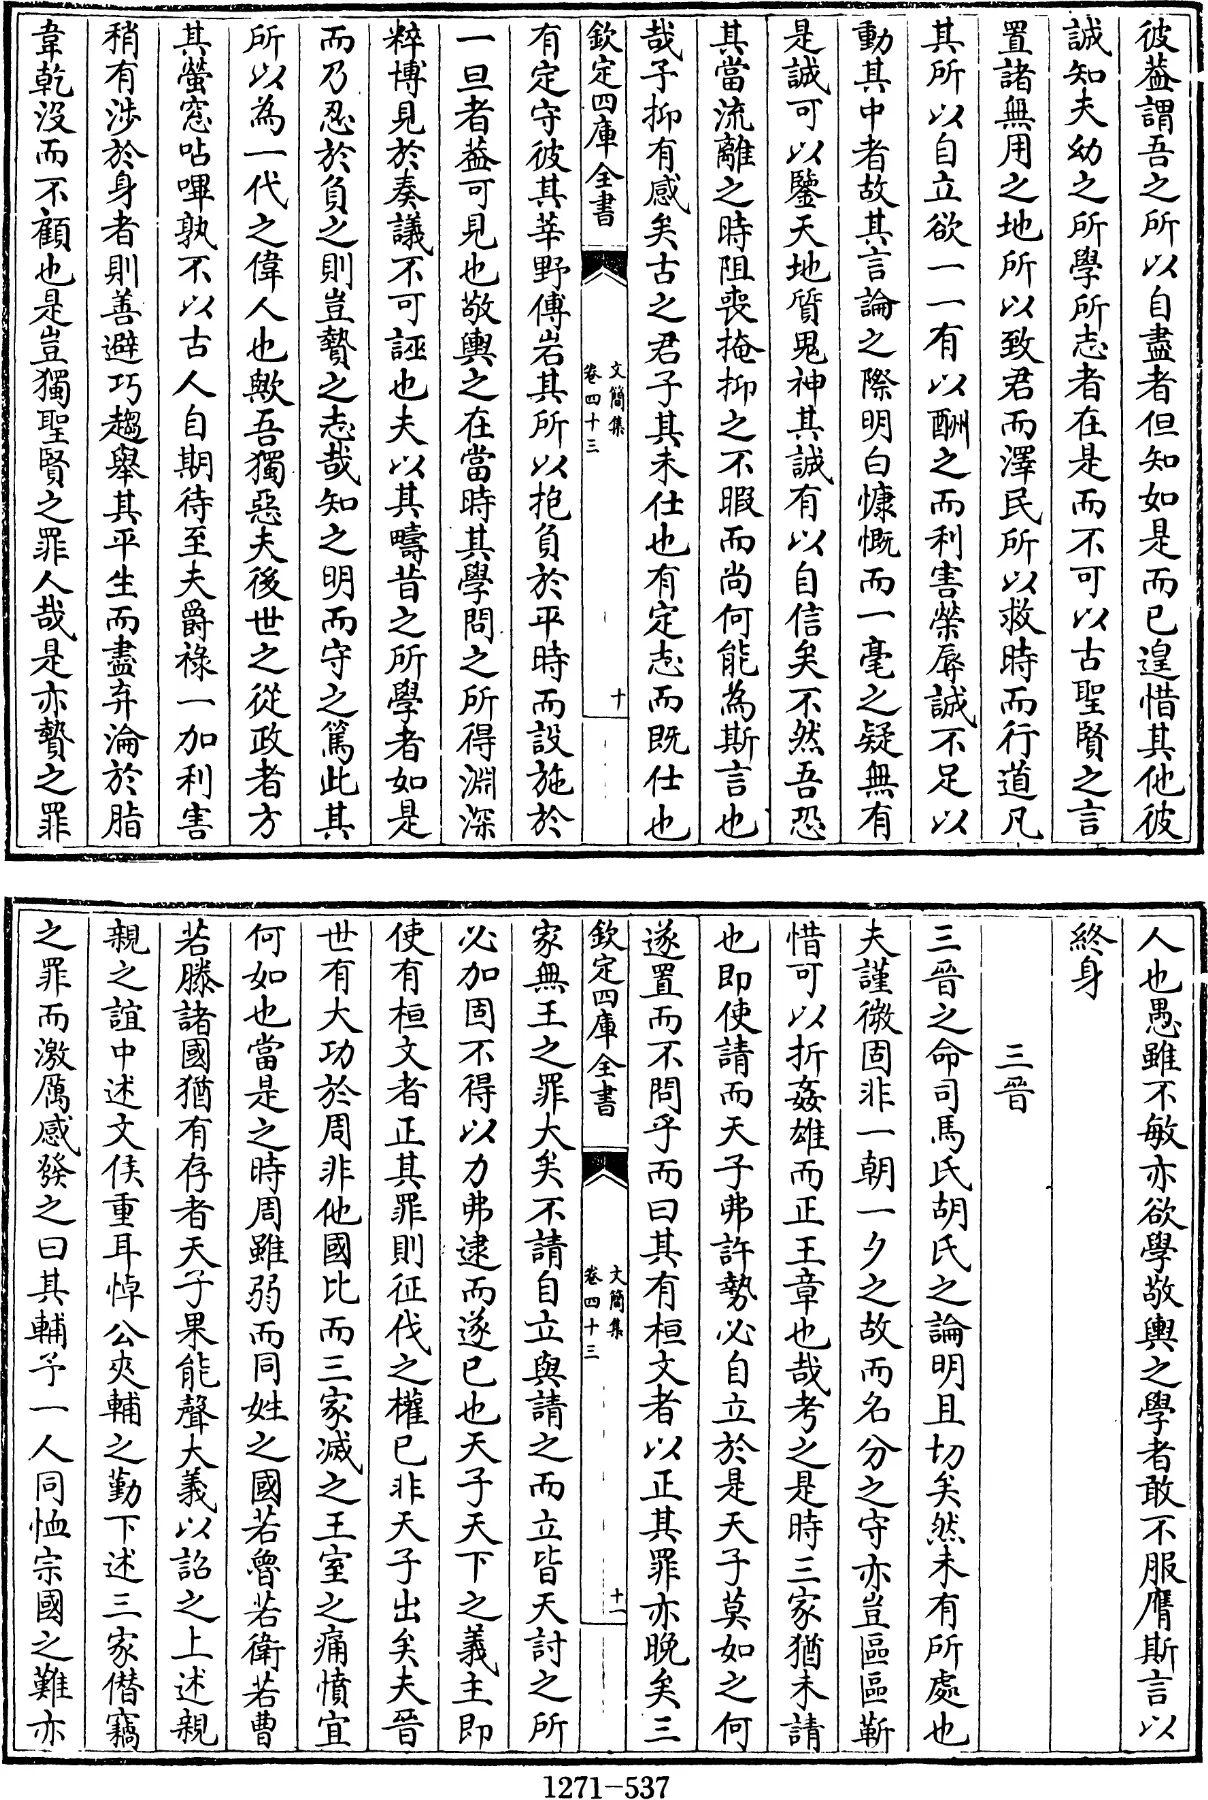 彼葢謂吾之所以自盡者但知如是而已遑惜其他彼
誠知夫幼之所學所志者在是而不可以古聖賢之言
置諸無用之地所以致君而澤民所以救時而行道凡
其所以自立欲一一有以酬之而利害榮辱誠不足以
動其中者故其言論之際明白慷慨而一毫之疑無有
是誠可以鑒天地質鬼神其誠有以自信矣不然吾恐
其當流離之時阻喪掩抑之不暇而尚何能為斯言也
哉予抑有感矣古之君子其未仕也有定志而既仕也
欽定四庫全書
文簡集
卷四十三
十
有定守彼其莘野傅岩其所以抱負於平時而設施於
一旦者葢可見也敬輿之在當時其學問之所得淵深
粹博見於奏議不可誣也夫以其疇昔之所學者如是
而乃忍於負之則豈贄之志哉知之明而守之篤此其
所以為一代之偉人也歟吾獨惡夫後世之從政者方
其螢窓呫嗶孰不以古人自期待至夫爵祿一加利害
稍有涉於身者則善避巧趨舉其平生而盡弃淪於脂
韋乾没而不顧也是豈獨聖賢之罪人哉是亦贄之罪
人也愚雖不敏亦欲學敬輿之學者敢不服膺斯言以
終身
三晉
三晉之命司馬氏胡氏之論明且切矣然未有所處也
夫謹微固非一朝一夕之故而名分之守亦豈區區靳
惜可以折姦雄而正王章也哉考之是時三家猶未請
也即使請而天子弗許勢必自立於是天子莫如之何
遂置而不問乎而曰其有桓文者以正其罪亦晩矣三
欽定四庫全書
文簡集
卷四十三
十一
家無王之罪大矣不請自立與請之而立皆天討之所
必加固不得以力弗逮而遂已也天子天下之義主即
使有桓文者正其罪則征伐之權已非天子出矣夫晉
世有大功於周非他國比而三家滅之王室之痛憤宜
何如也當是之時周雖弱而同姓之國若魯若衛若曹
若滕諸國猶有存者天子果能聲大義以詔之上述親
親之誼中述文侯重耳悼公夾輔之勤下述三家僣竊
之罪而激厲感發之曰其輔予一人同恤宗國之難亦
1271-537